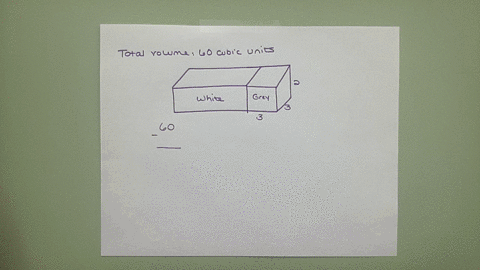 Total volume: 60 cubic units
White Grey 2
3
3
- 60